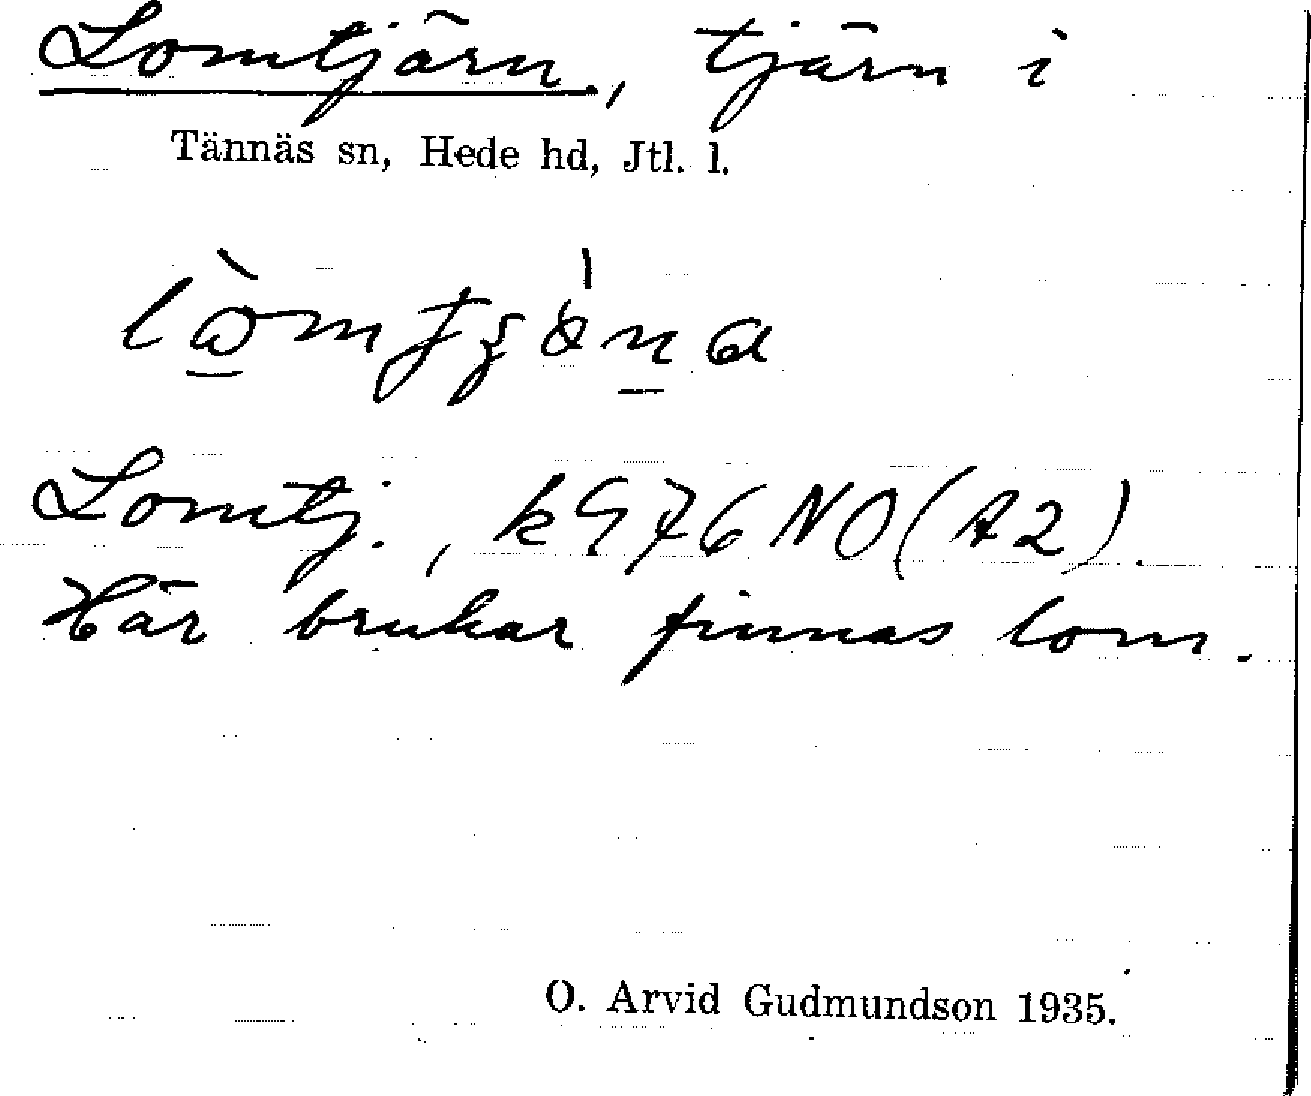 Lomtjärn, tjärn i
Tännäs sn, Hede hd, Jtl. l.
Lomtj., k976NO(A2).
Här brukar finnas lom.
O. Arvid Gudmundson 1935.